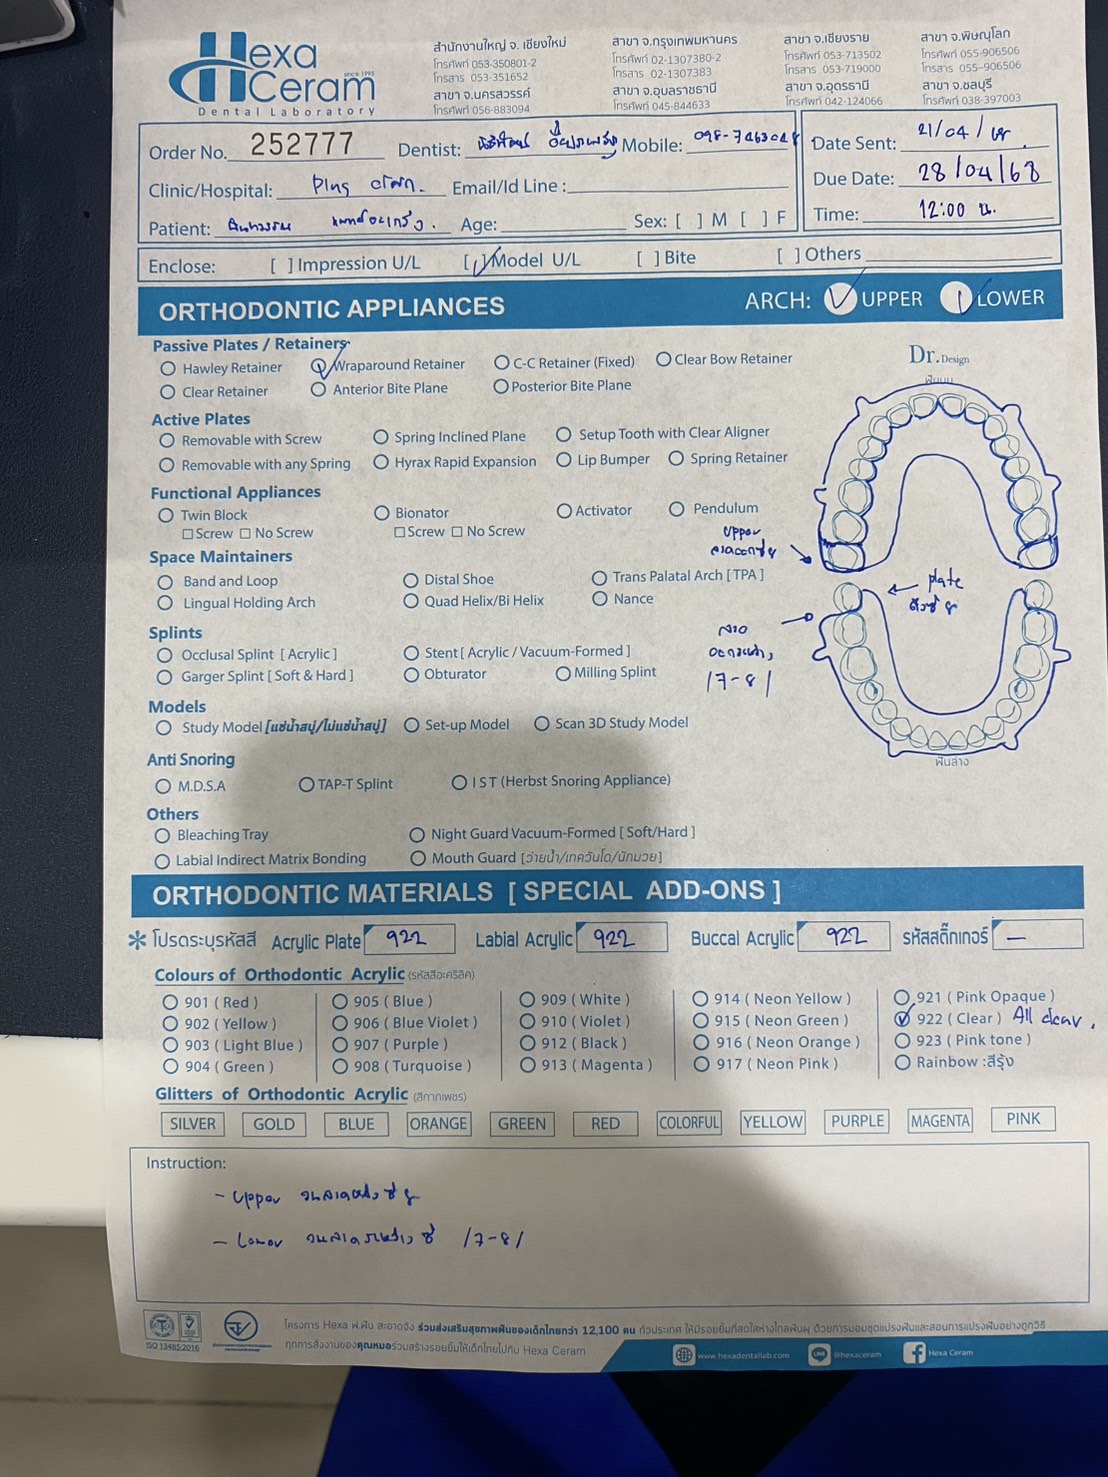 Hexa Ceram
since 1995
Dental Laboratory
สำนักงานใหญ่ จ. เชียงใหม่
โทรศัพท์ 053-350801-2
โทรสาร 053-351652
สาขา จ.นครสวรรค์
โทรศัพท์ 056-883094
สาขา จ.กรุงเทพมหานคร
โทรศัพท์ 02-1307380-2
โทรสาร 02-1307383
สาขา จ.อุบลราชธานี
โทรศัพท์ 045-844633
สาขา จ.เชียงราย
โทรศัพท์ 053-713502
โทรสาร 053-719000
สาขา จ.อุดรธานี
โทรศัพท์ 042-124066
สาขา จ.พิษณุโลก
โทรศัพท์ 055-906506
โทรสาร 055-906506
สาขา จ.ชลบุรี
โทรศัพท์ 038-397003
Order No. 252777 Dentist: Mobile:
Clinic/Hospital: Email/Id Line :
Patient: Age: Sex: [ ] M [ ] F
Date Sent: 21/04/
Due Date: 28/04/68
Time: 12:00 น.
Enclose: [ ] Impression U/L [ ] Model U/L [ ] Bite [ ] Others
ORTHODONTIC APPLIANCES ARCH: UPPER LOWER
Passive Plates / Retainers
Hawley Retainer Wraparound Retainer C-C Retainer (Fixed) Clear Bow Retainer
Clear Retainer Anterior Bite Plane Posterior Bite Plane
Dr. Design
ฟันบน
Active Plates
Removable with Screw Spring Inclined Plane Setup Tooth with Clear Aligner
Removable with any Spring Hyrax Rapid Expansion Lip Bumper Spring Retainer
Functional Appliances
Twin Block Bionator Activator Pendulum
Screw No Screw Screw No Screw
upper
Space Maintainers
Band and Loop Distal Shoe Trans Palatal Arch [ TPA ]
Lingual Holding Arch Quad Helix/Bi Helix Nance
plate
Splints
Occlusal Splint [ Acrylic ] Stent [ Acrylic / Vacuum-Formed ]
Garger Splint [ Soft & Hard ] Obturator Milling Splint
/7-8/
Models
Study Model [แช่น้ำสบู่/ไม่แช่น้ำสบู่] Set-up Model Scan 3D Study Model
ฟันล่าง
Anti Snoring
M.D.S.A TAP-T Splint I S T (Herbst Snoring Appliance)
Others
Bleaching Tray Night Guard Vacuum-Formed [ Soft/Hard ]
Labial Indirect Matrix Bonding Mouth Guard [ว่ายน้ำ/เทควันโด/นักมวย]
ORTHODONTIC MATERIALS [ SPECIAL ADD-ONS ]
* โปรดระบุรหัสสี Acrylic Plate 922 Labial Acrylic 922 Buccal Acrylic 922 รหัสสติ๊กเกอร์ —
Colours of Orthodontic Acrylic (รหัสสีอะคริลิค)
901 ( Red ) 905 ( Blue ) 909 ( White ) 914 ( Neon Yellow ) 921 ( Pink Opaque )
902 ( Yellow ) 906 ( Blue Violet ) 910 ( Violet ) 915 ( Neon Green ) 922 ( Clear ) All clear.
903 ( Light Blue ) 907 ( Purple ) 912 ( Black ) 916 ( Neon Orange ) 923 ( Pink tone )
904 ( Green ) 908 ( Turquoise ) 913 ( Magenta ) 917 ( Neon Pink ) Rainbow :สีรุ้ง
Glitters of Orthodontic Acrylic (สีกากเพชร)
SILVER GOLD BLUE ORANGE GREEN RED COLORFUL YELLOW PURPLE MAGENTA PINK
Instruction:
- upper
- Lower /7-8/
ISO 13485:2016
โครงการ Hexa ฟ.ฟัน สะอาดจัง ร่วมส่งเสริมสุขภาพฟันของเด็กไทยกว่า 12,100 คน ทั่วประเทศ ให้มีรอยยิ้มที่สดใสห่างไกลฟันผุ ด้วยการมอบชุดแปรงฟันและสอนการแปรงฟันอย่างถูกวิธี
ทุกการสั่งงานของคุณหมอร่วมสร้างรอยยิ้มให้เด็กไทยไปกับ Hexa Ceram
www.hexadentallab.com @hexaceram Hexa Ceram